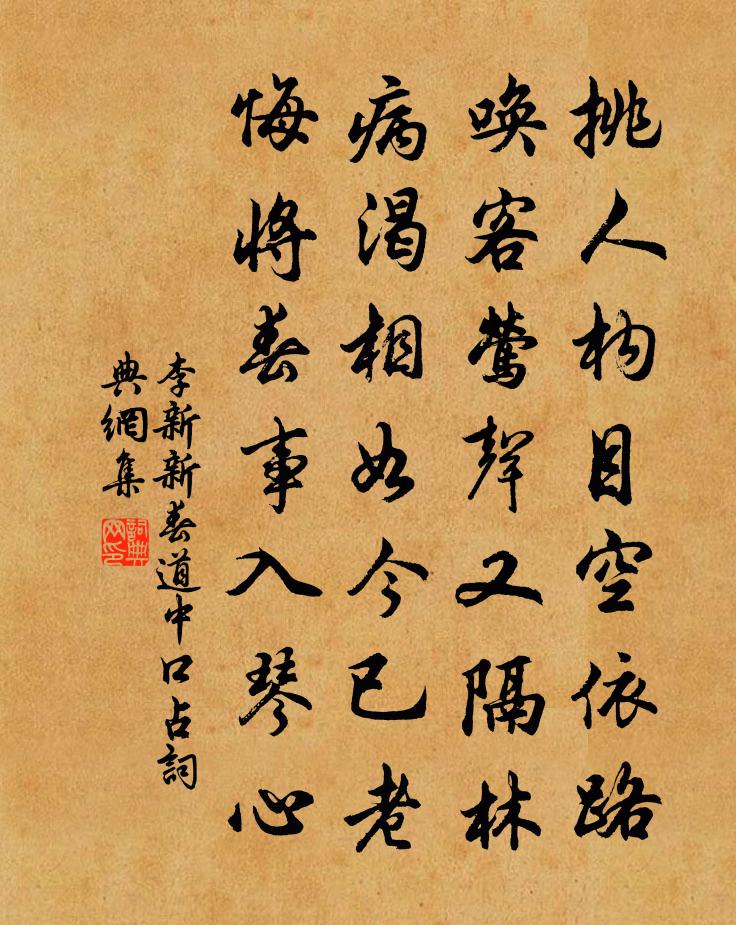 挑人柳目空依路
喚客鶯聲又隔林
病渴相如今已老
悔將春事入琴心
李新新春道中口占詞
典網集
詞典
网印